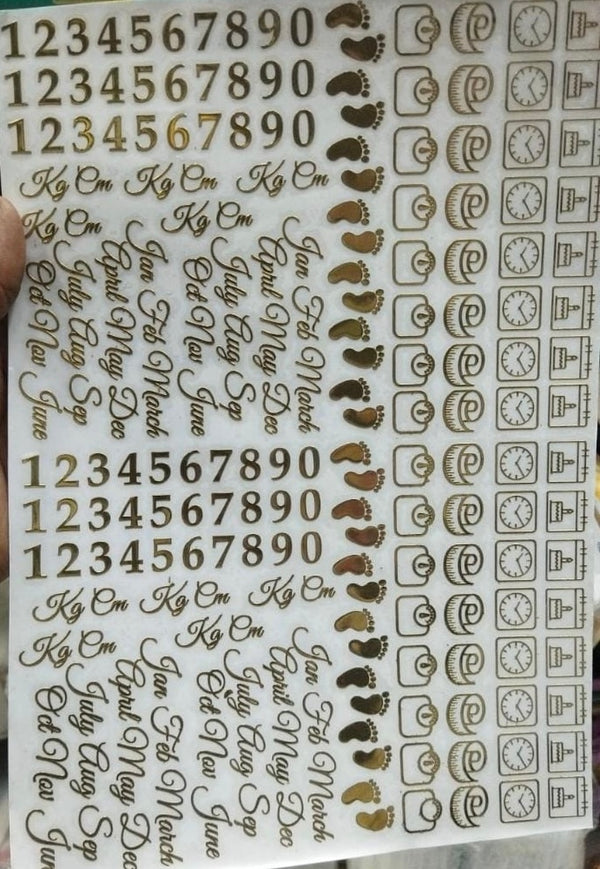 1234567890
1234567890
1234567890
Kg Cm Kg Cm Kg Cm
Kg Cm Kg Cm
Jan Feb March
April May Dec
July Aug Sep
Oct Nov June
Jan Feb March
April May Dec
July Aug Sep
Oct Nov June
1234567890
1234567890
1234567890
Kg Cm Kg Cm Kg Cm
Kg Cm Kg Cm
Jan Feb March
April May Dec
July Aug Sep
Oct Nov June
Jan Feb March
April May Dec
July Aug Sep
Oct Nov Jun